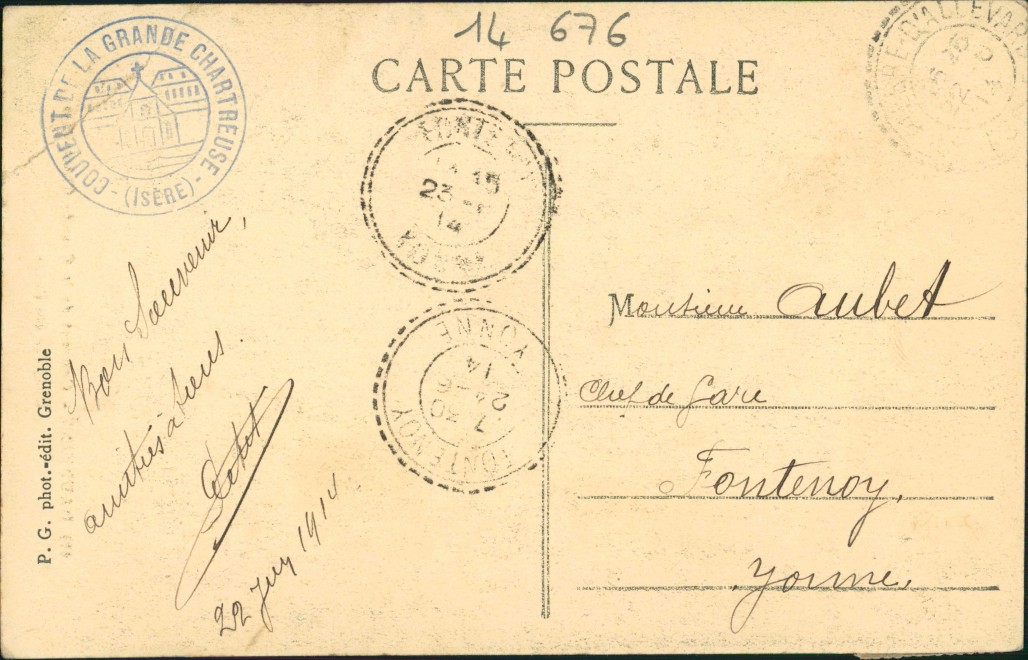 14 676
CARTE POSTALE
COUVENT DE LA GRANDE CHARTREUSE
- (ISÈRE) -
D'ALLEVARD
15
23
14
YONNE
14
24 6
7 30
FONTENOY
Monsieur Aubet
Chef de Gare
Fontenoy,
Yonne.
Bon Souvenir,
amitiés à tous.
Petit
22 Juin 1914
P. G. phot.-édit. Grenoble